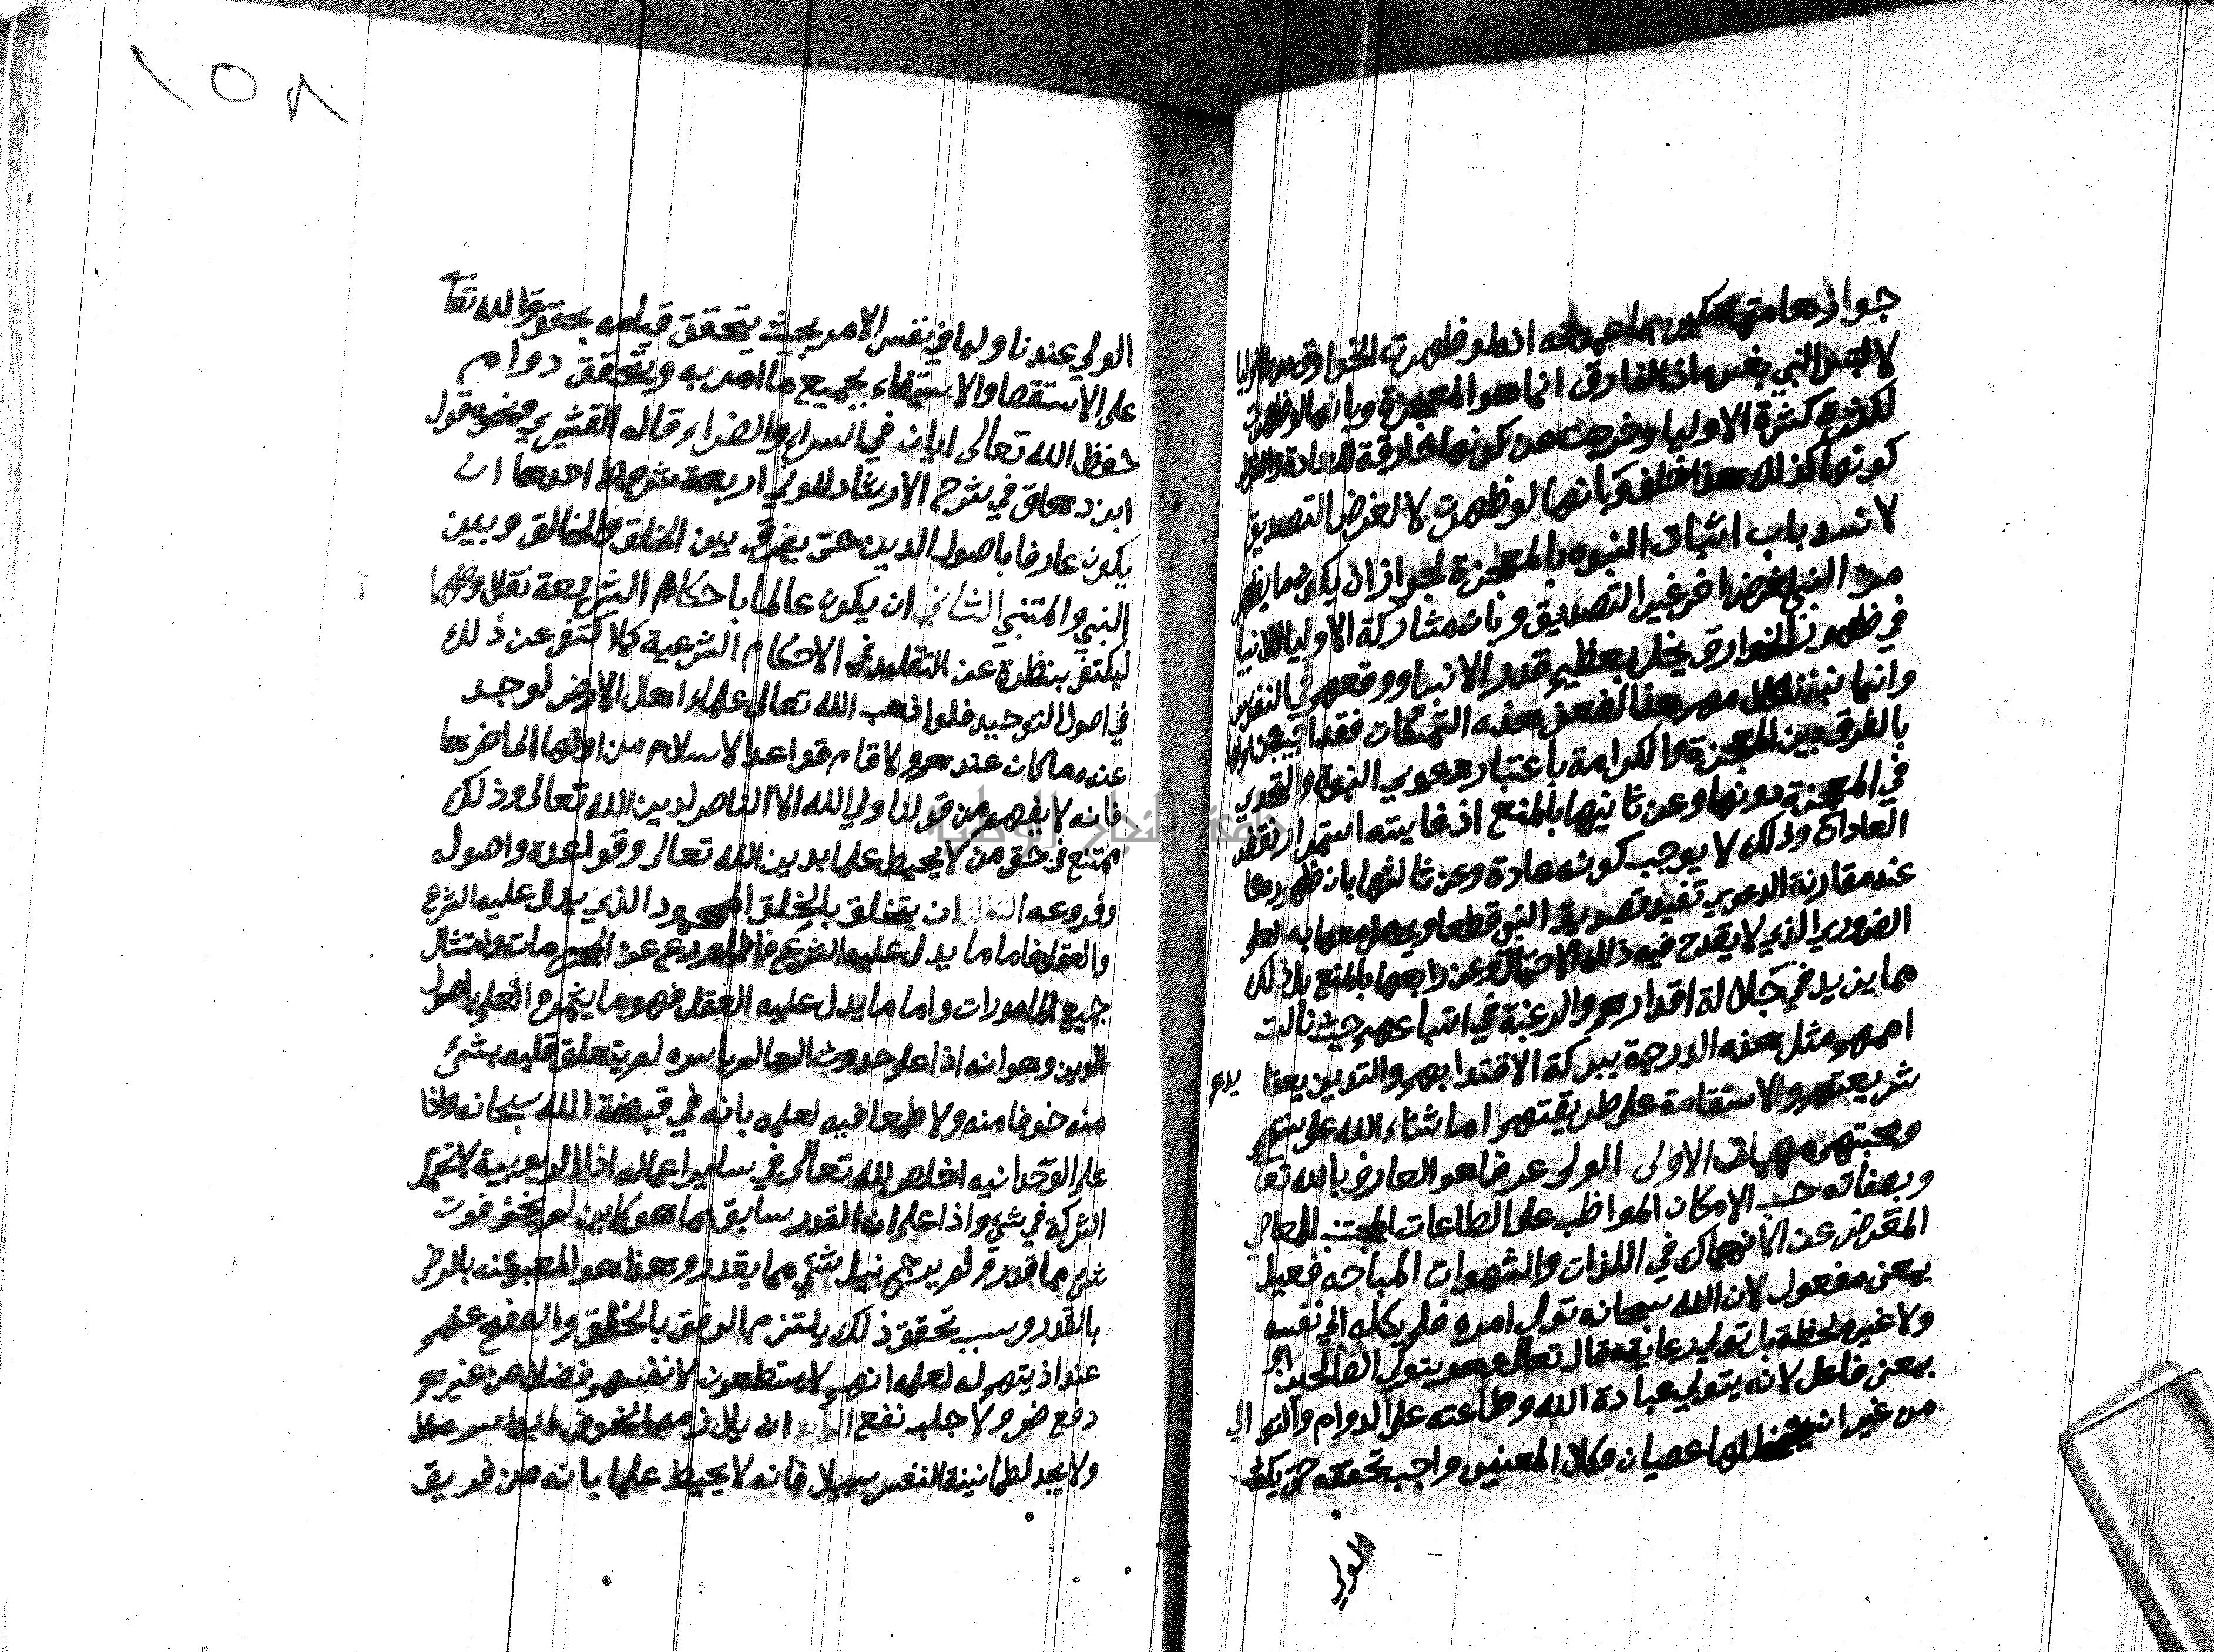 جوازها متمسكين بما عمدته انه لو ظهرت الخوارق من الاوليا
لالتبس النبي بغيره اذ الفارق انما هو المعجزة وبانها لو ظهرت
لكثرت كثرة الاوليا وخرجت عن كونها خارقة للعادة والفرض
كونها كذلك هذا خلف وبانها لو ظهرت لا لغرض التصديق
لانسد باب اثبات النبوه بالمعجزة لجواز ان يكون ما يظهر
من النبي لغرض اخر غير التصديق وبان مشاركة الاوليا للانبيا
في ظهور الخوارق يخل بعظيم قدر الانبيا ووقعهم في النفوس
وانما نبذنا كلامهم هنا لضعف هذه التمسكات فقد اجيب عن اولها
بالفرق بين المعجزة والكرامة باعتبار دعوي النبوة والتحدي
في المعجزة دونها وعن ثانيها بالمنع اذ غايته استمرار نقض
العادات وذلك لا يوجب كونه عادة وعن ثالثها بان ظهورها
عند مقارنة الدعوي تفيد تصديق النبي قطعا ويحصل معها به العلم
الضروري الذي لا يقدح فيه ذلك الاحتمال وعن رابعها بالمنع بل ذلك
مما يزيد في جلالة اقدارهم والرغبة في اتباعهم حيث نالت
اممهم مثل هذه الدرجة ببركة الاقتدا بهم والتدين
شريعتهم والاستقامة على طريقتهم اماتنا الله على
ومحبتهم مهمات الاولى الولى عرفا هو العارف بالله تعا
وبصفاته حسب الامكان المواظب على الطاعات المجتنب للمعاصي
المعرض عن الانهماك في اللذات والشهوات المباحه فعيل
بمعنى مفعول لان الله سبحانه تولى امره فلم يكله الي نفسه
ولا غيره لحظة بل تولي رعايته قال تعالى وهو يتولى الصالحين او
بمعنى فاعل لانه يتولى عبادة الله وطاعته على الدوام والتوالي
من غير ان يتخللها عصيان وكلا المعنيين واجب تحققه حتى يكون
الولي
١٥٨
الولي عندنا وليا في نفس الامر بحيث يتحقق قيامه بحقوق الله تعا
على الاستقصا والاستيفاء بجميع ما امر به ويتحقق دوام
حفظ الله تعالى اياه في السراء والضراء قاله القشيري ونحوه قول
ابن دهاق في شرح الارشاد للولي اربعة شروط احدها ان
يكون عارفا باصول الدين حتى يفرق بين الخلق والخالق وبين
النبي والمتنبي الثاني ان يكون عالما باحكام الشريعة نقلا وفهما
ليكتفي بنظره عن التقليد في الاحكام الشرعية كما اكتفى عن ذلك
في اصول التوحيد فلو اذهب الله تعالى علماء اهل الارض لوجد
عنده ما كان عندهم ولاقام قواعد الاسلام من اولها الى اخرها
فانه لا يفهم من قولنا ولي الله الا الناصر لدين الله تعالى وذلك
ممتنع في حق من لا يحيط علما بدين الله تعالى وقواعده واصوله
وفروعه الثالث ان يتخلق بالخلق المحمود الذي يدل عليه الشرع
والعقل فاما ما يدل عليه الشرع فالورع عن المحرمات وامتثال
جميع المامورات واما ما يدل عليه العقل فهو ما يثمره العلم باصول
الدين وهو انه اذا علم حدوث العالم باسره لم يتعلق قلبه بشئ
منه خوفا منه ولا طمعا فيه لعلمه بانه في قبضة الله سبحانه واذا
علم الوحدانيه اخلص لله تعالى في ساير اعماله اذ الربوبية لا تحتمل
الشركة في شئ واذا علم ان القدر سابق بما هو كاين لم يخف فوت
شئ مما قدر ولم يرج نيل شئ مما يقدر وهذا هو المعبر عنه بالرضى
بالقدر وسبب تحقق ذلك يلتزم الرفق بالخلق والصفح عنهم
عند اذيتهم له لعلمه انهم لا يستطيعون لانفسهم فضلا عن غيرهم
دفع ضر ولا جلب نفع الرابع ان يلازمه الخوف ابدا سرمدا
ولا يجد لطمانينة النفس سبيلا فانه لا يحيط علما بانه من فريق
جامعة النجاح الوطنية